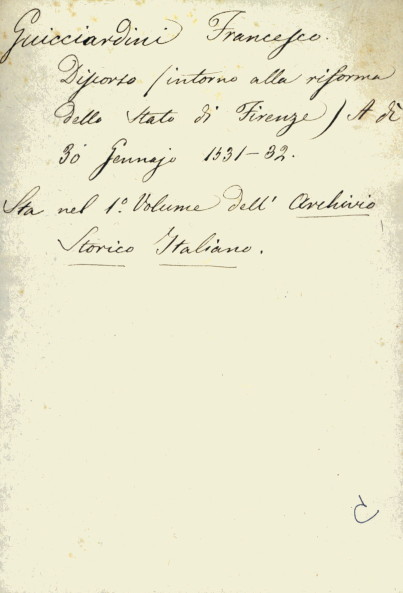 Guicciardini Francesco.
Discorso (intorno alla riforma
dello Stato di Firenze) A dì
30 Gennajo 1531-32.
Sta nel 1.º Volume dell' Archivio
Storico Italiano.